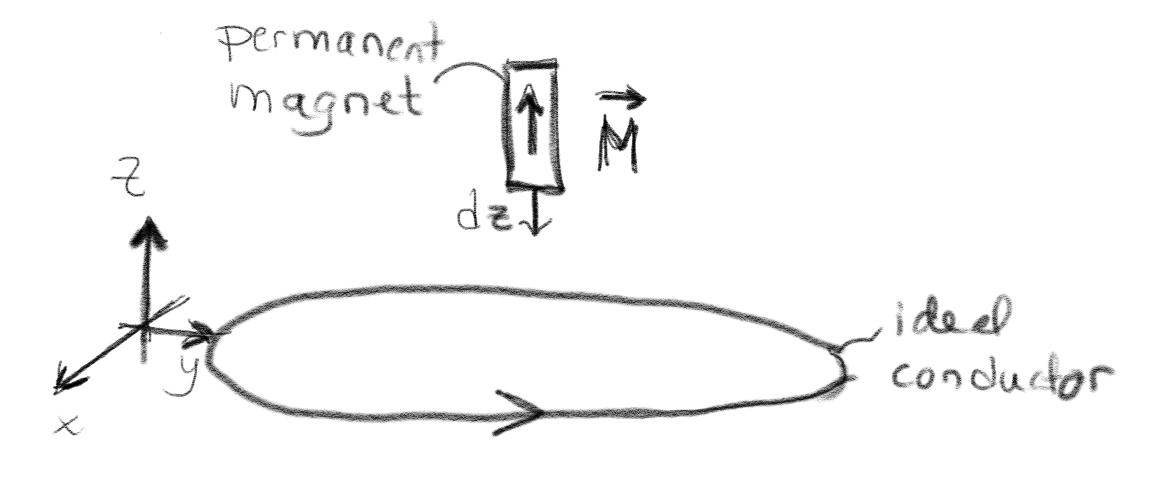 permanent
magnet
M
z
dz
ideal
conductor
y
x